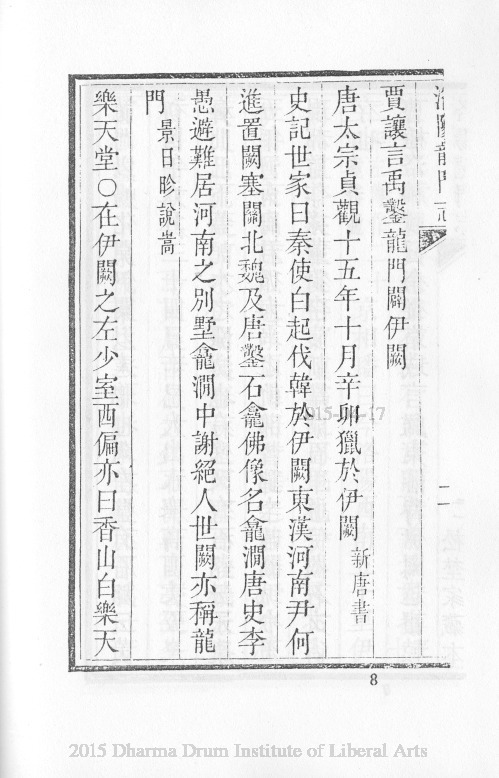 洛陽龍門志
二
賈讓言禹鑿龍門闢伊闕
唐太宗貞觀十五年十月辛卯獵於伊闕 新唐書
史記世家曰秦使白起伐韓於伊闕東漢河南尹何
進置闕塞關北魏及唐鑿石龕佛像名龕澗唐史李
愚避難居河南之別墅龕澗中謝絕人世闕亦稱龍
門 景日昣說嵩
樂天堂〇在伊闕之左少室西偏亦曰香山白樂天
8
2015 Dharma Drum Institute of Liberal Arts